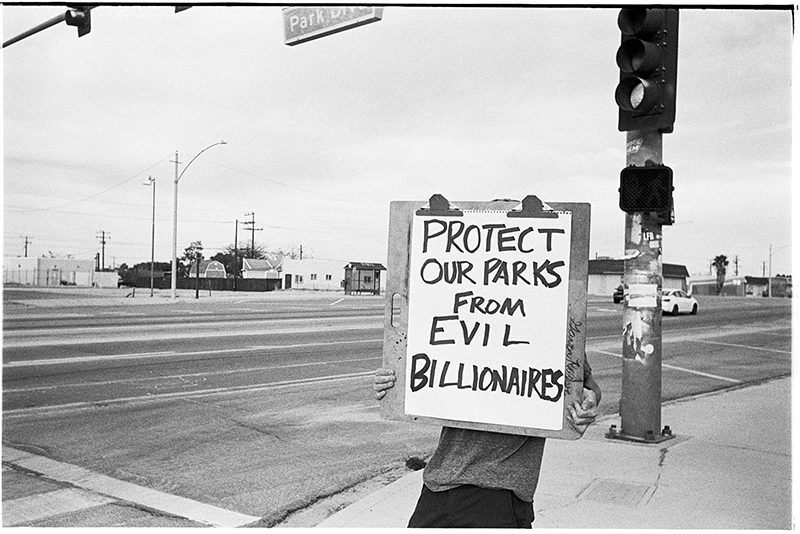 Park Drive
PROTECT
OUR PARKS
FROM
EVIL
BILLIONAIRES